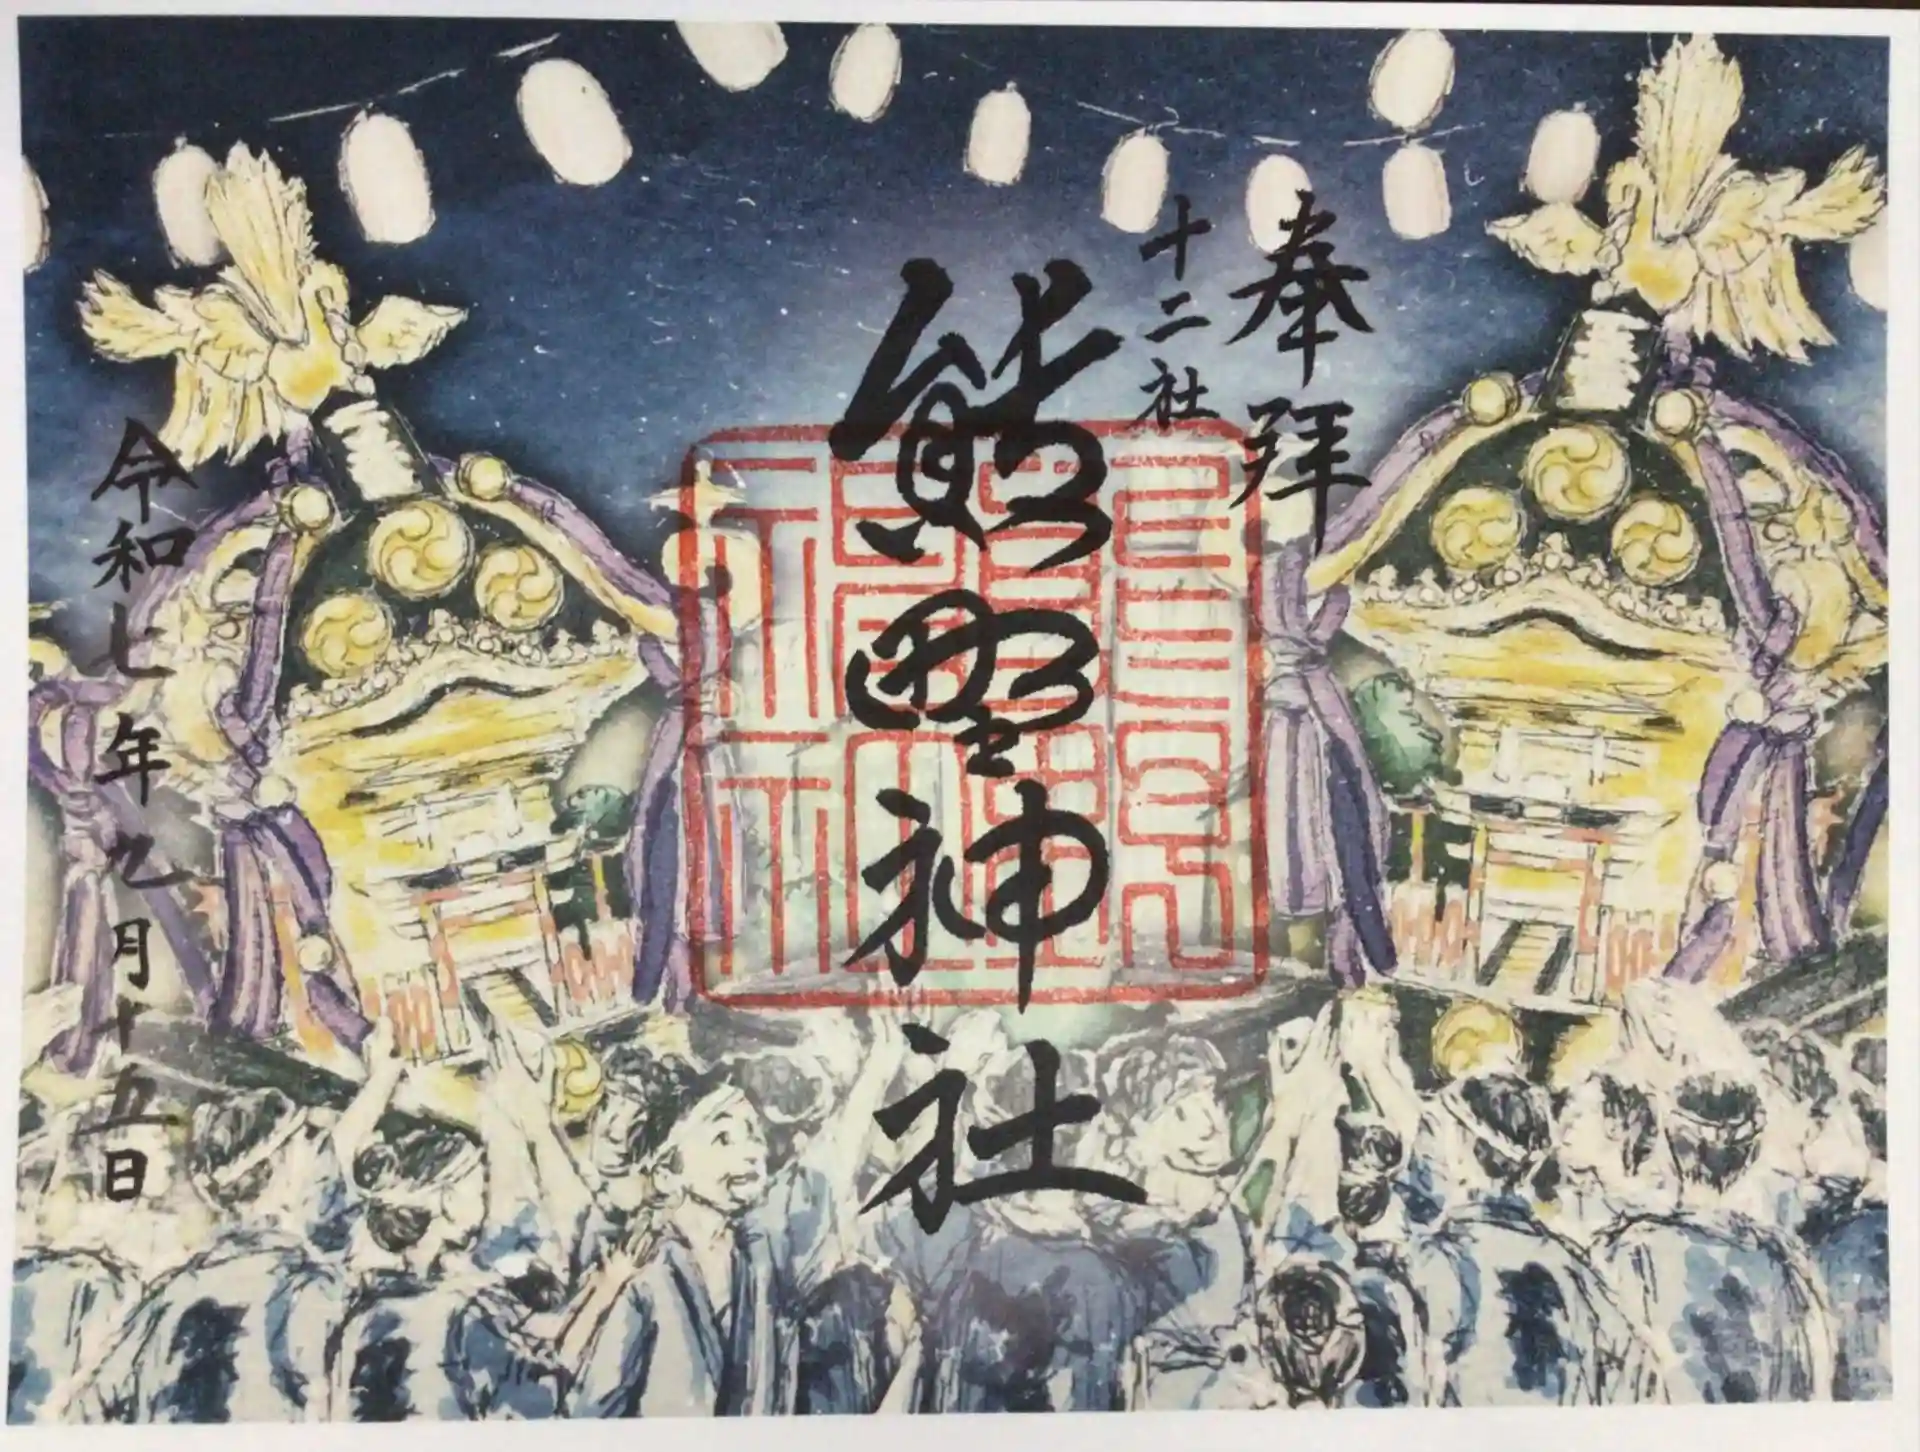 奉拝
十二社
熊野神社
令和七年九月十五日